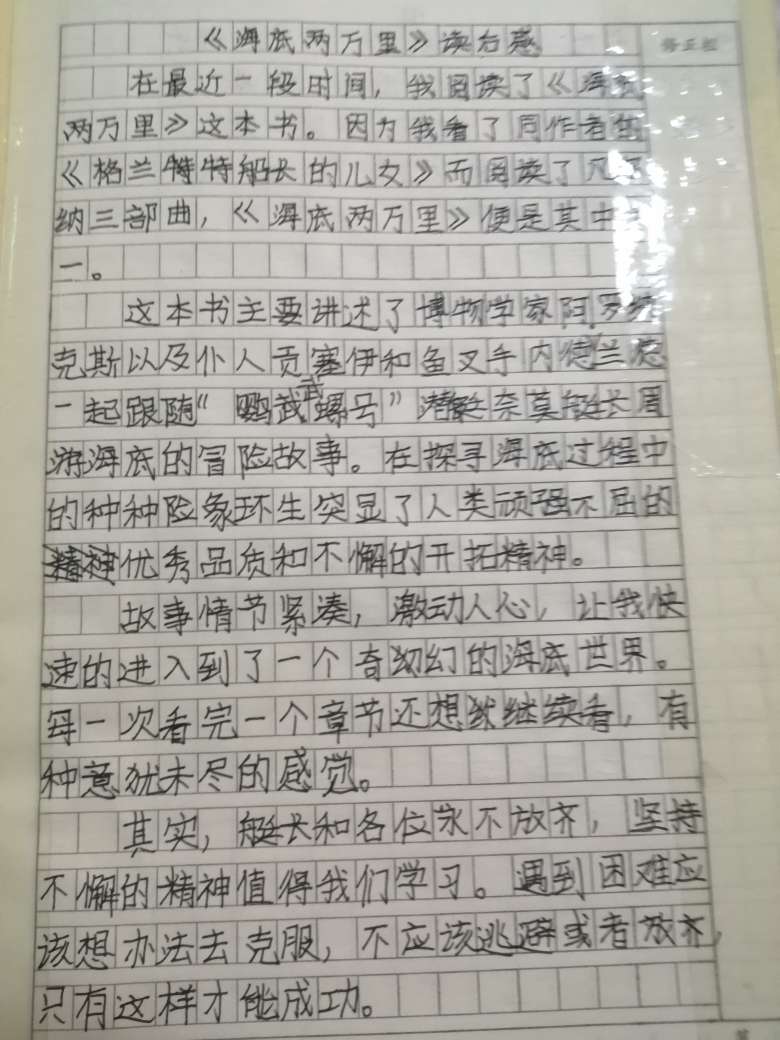 《海底两万里》读后感
修正栏
在最近一段时间，我阅读了《海底
两万里》这本书。因为我看了同作者的
《格兰特特船长的儿女》而阅读了凡尔
纳三部曲，《海底两万里》便是其中之
一。
这本书主要讲述了博物学家阿罗纳
克斯以及仆人贡塞伊和鱼叉手内德兰德
一起跟随“鹦武螺号”潜艇奈莫艇长周
游海底的冒险故事。在探寻海底过程中
的种种险象环生突显了人类顽强不屈的
优秀品质和不懈的开拓精神。
故事情节紧凑，激动人心，让我快
速的进入到了一个奇幻的海底世界。
每一次看完一个章节还想继续看，有
种意犹未尽的感觉。
其实，艇长和各位永不放齐，坚持
不懈的精神值得我们学习。遇到困难应
该想办法去克服，不应该逃避或者放齐，
只有这样才能成功。